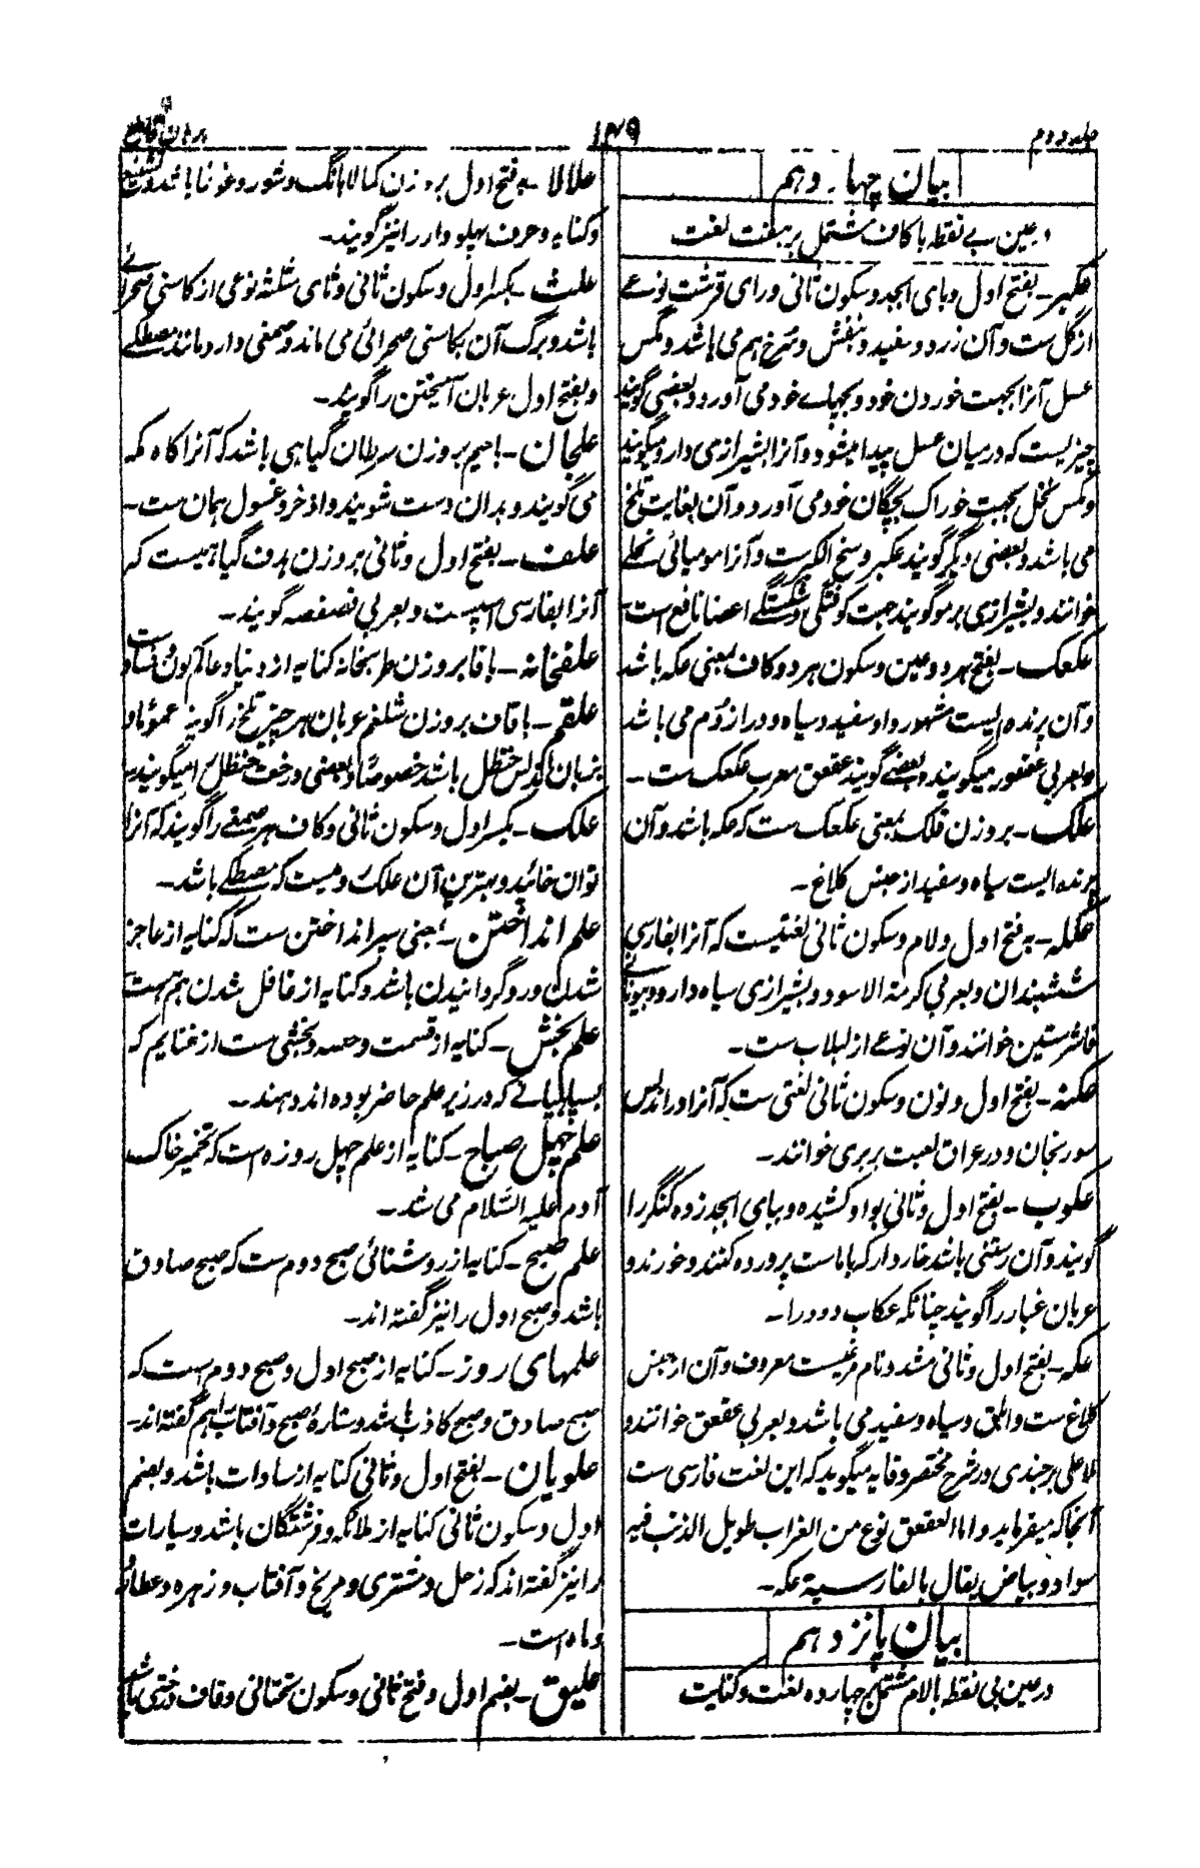 جلد دوم
۱۴۹
برهان قاطع
بیان چهاردهم
در عین بے نقطه با کاف مشتمل بر هفت لغت
عکبر ـ بفتح اول و بای ابجد و سکون ثانی و رای قرشت نوعے
از گل ست و آن زرد و سفید و بنفش و سرخ هم می باشد و مگس
عسل آنرا بجهت خوردن خود و بچهاے خود می آورد و بعضی گویند
چیزیست که درمیان عسل پیدا میشود و آنرا بشیرازی دارو میگویند
و مگس نحل بجهت خوراک بچگان خود می آورد و آن بغایت تلخ
می باشد و بعضی دیگر گویند عکبر وسخ الکبرت و آنرا مومیائی نحلے
خوانند و بشیرازی برمو گویند جهت کوفتگی و شکستگے اعضا نافع است
عکعک ـ بفتح هر دو عین و سکون هر دو کاف بمعنی عکه باشد
و آن پرنده ایست مشهور و او سفید و سیاه و دراز دم می باشد
و بعربی عقعق میگویند و بعضے گویند عقعق معرب عکعک ست ـ
عکک ـ بروزن فلک بمعنی عکعک ست که عکه باشد و آن
پرنده ایست سیاه و سفید از جنس کلاغ ـ
عکله ـ بفتح اول و لام و سکون ثانی لغتیست که آنرا بفارسی
ششبندان و بعربی کرمة الاسود و بشیرازی سیاه دارو و بیونانے
فاشرستین خوانند و آن نوعے از لبلاب ست ـ
عکنه ـ بفتح اول و نون و سکون ثانی لغتی ست که آنرا در اندلس
سورنجان و در عراق لعبت بربری خوانند ـ
عکوب ـ بفتح اول و ثانی بواو کشیده و ببای ابجد زده کنگر را
گویند و آن رستنی باشد خاردار که با ماست پرورده کنند و خورند و
عربان غبار را گویند چنانکه عکاب دود را ـ
عکه ـ بفتح اول و ثانی مشدد نام مرغیست معروف و آن از جنس
کلاغ ست و ابلق و سیاه و سفید می باشد و بعربی عقعق خوانند و
ملا علی برجندی در شرح مختصر وقایه میگوید که این لغت فارسی ست
آنجا که میفرماید و اما العقعق نوع من الغراب طویل الذنب فیه
سواد و بیاض یقال بالفارسیة عکه ـ
بیان پانزدهم
در عین بی نقطه با لام مشتمل بر چهارده لغت و کنایت
علالا ـ بفتح اول بر وزن کمالا بانگ و شور و غوغا باشد و تشنیع
و کنایه و حرف پهلودار را نیز گویند ـ
علث ـ بکسر اول و سکون ثانی و ثای مثلثه نوعی از کاسنی صحرائے
باشد و برگ آن بکاسنی صحرائی می ماند و صمغی دارد مانند مصطکے
و بفتح اول عربان آمیختن را گویند ـ
علجان ـ با جیم بروزن سرطان گیاهی باشد که آنرا کاه مکه
می گویند و بدان دست شویند و اذخر و غسول همان ست ـ
علف ـ بفتح اول و ثانی بروزن هدف گیاهیست که
آنرا بفارسی اسپست و بعربی فصفصه گویند ـ
علفخانه ـ با فا بروزن طربخانه کنایه از دنیا و عالم کون و فساد ست
علقم ـ با قاف بروزن شلغم عربان هر چیز تلخ را گویند عموماً و
بزبان اندلس حنظل باشد خصوصاً و بعضی درخت حنظل را میگویند
علک ـ بکسر اول و سکون ثانی و کاف هر صمغے را گویند که آنرا
توان خائید و بهترین آن علک رومیست که مصطکے باشد ـ
علم انداختن ـ بمعنی سپر انداختن ست که کنایه از عاجز
شدن و رو گردانیدن باشد و کنایه از غافل شدن هم هست
علم بخش ـ کنایه از قسمت و حصه و بخشی ست از غنایم که
بسپاهیانے که در زیر علم حاضر بوده اند دهند ـ
علم چهل صباح ـ کنایه از علم چهل روزه است که تخمیر خاک
آدم علیه السلام می شد ـ
علم صبح ـ کنایه از روشنائی صبح دوم ست که صبح صادق
باشد و صبح اول را نیز گفته اند ـ
علمهای روز ـ کنایه از صبح اول و صبح دوم ست که
صبح صادق و صبح کاذب باشد و ستارهٔ صبح و آفتاب را هم گفته اند ـ
علویان ـ بفتح اول و ثانی کنایه از سادات باشد و بضم
اول و سکون ثانی کنایه از ملائکه و فرشتگان باشد و سیارات
را نیز گفته اند که زحل و مشتری و مریخ و آفتاب و زهره و عطارد
و ماه است ـ
علیق ـ بضم اول و فتح ثانی و سکون تحتانی و قاف درختی باشد